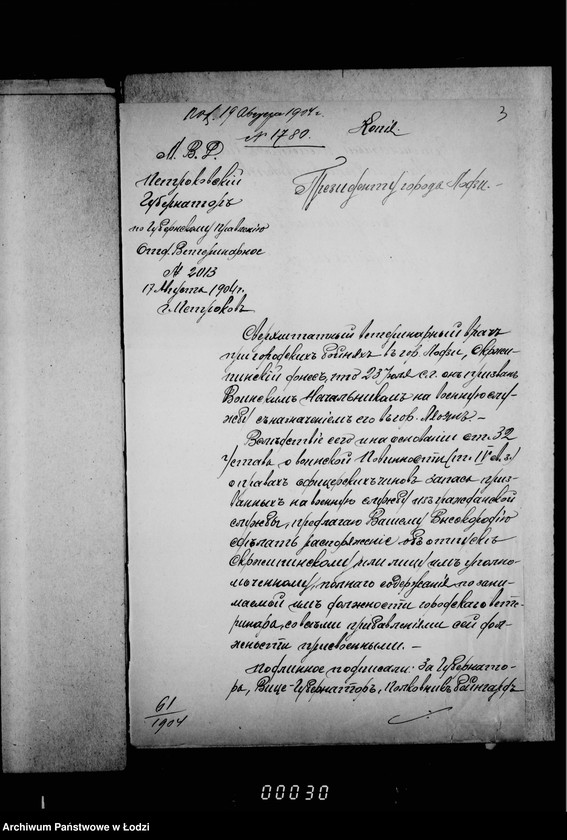 Пол. 19 Августа 1904 г.
№ 1780.
3
М. В. Д.
Петроковскій
Губернаторъ
по Губернскому Правленію
Отд. Ветеринарное
№ 2013
17 Августа 1904 г.
г. Петроковъ
Президенту города Лодзи.-
Сверхштатный ветеринарный врачъ
при городскихъ бойняхъ въ гор. Лодзи,
пинскій донесъ, что 23 Іюля с.г. онъ призванъ
Воинскимъ Начальникомъ на военную слу-
жбу съ назначеніемъ его въ гор.
Вслѣдствіе сего и на основаніи ст. 32
Устава о воинской Повинности
о правахъ офицерскихъ чиновъ запаса приз-
ванныхъ на военную службу изъ гражданской
службы, предлагаю Вашему Высокородію
сдѣлать распоряженіе объ отпускѣ
или лицу имъ уполно-
моченному, полнаго содержанія по зани-
маемой имъ должности городского вете-
ринара, со всѣми прибавленіями сей дол-
жности присвоенными.-
Подлинное подписали: За Губернато-
ра, Вице-Губернаторъ, Полковникъ
61
1904
00030
Archiwum Państwowe w Łodzi